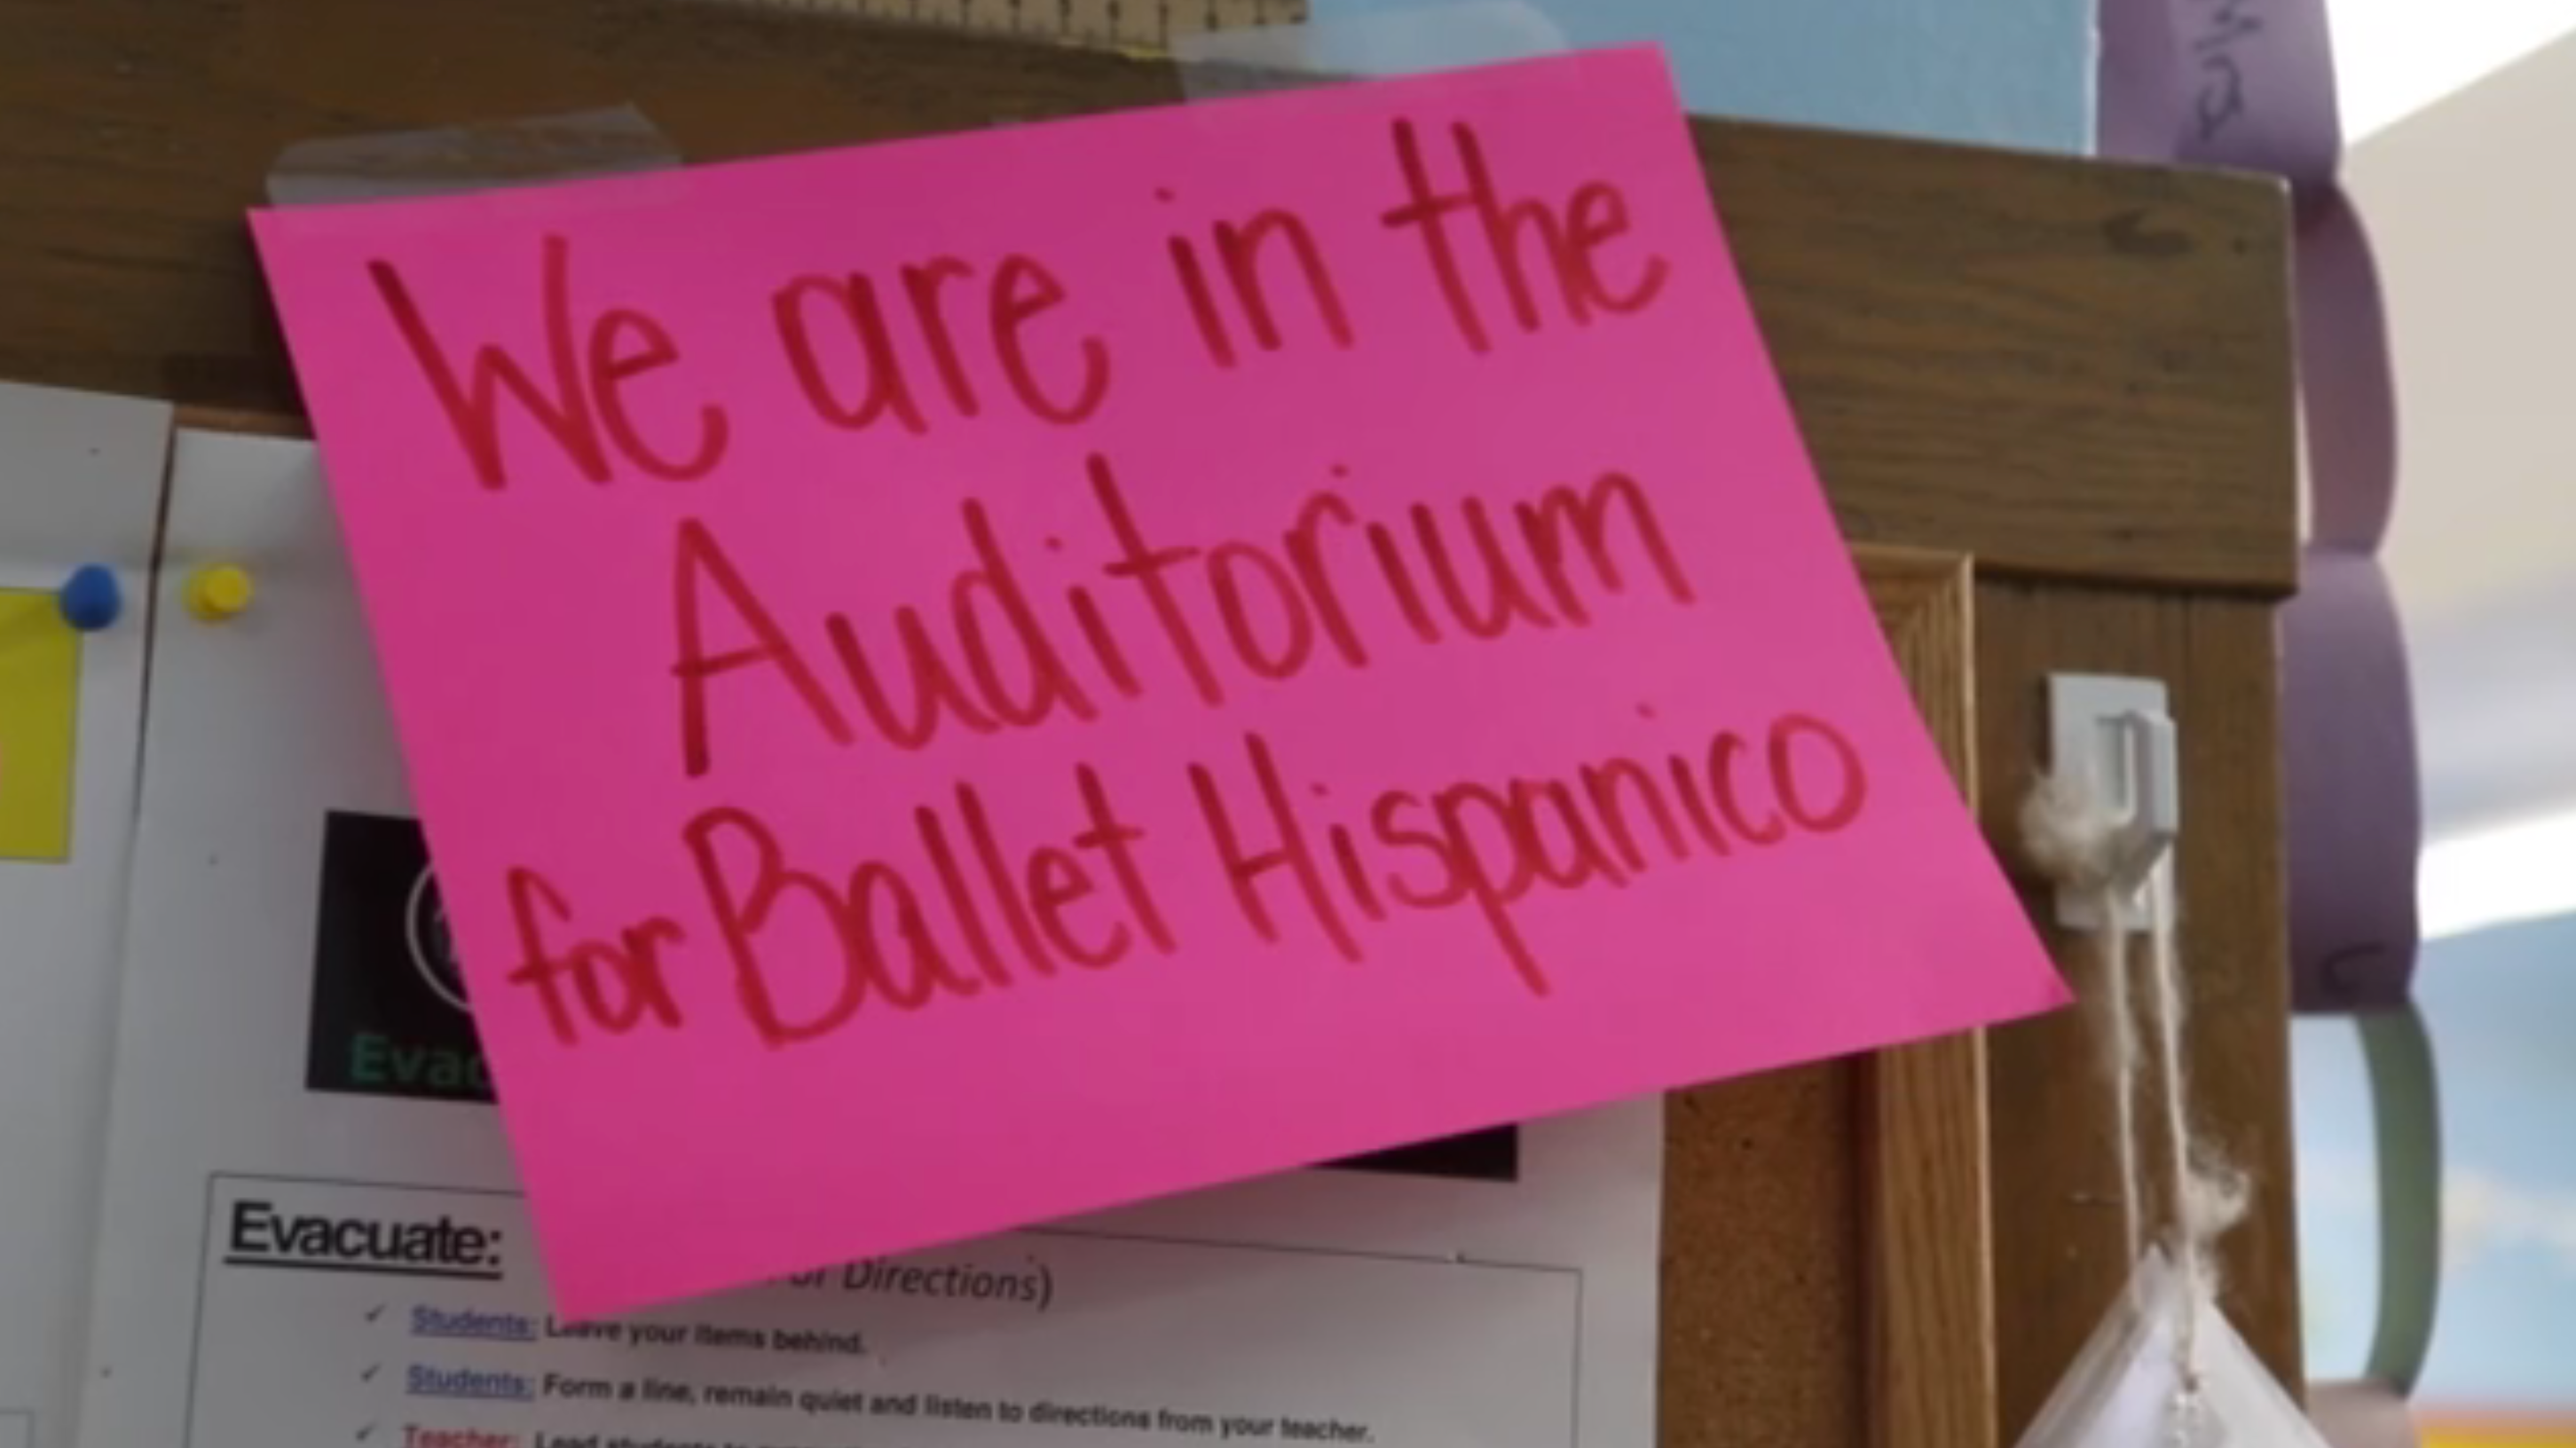 Mrs
We are in the
Auditorium
for Ballet Hispanico
Evacuate:
Directions)
Students: Leave your items behind.
Students: Form a line, remain quiet and listen to directions from your teacher.
Teacher: Lead students to